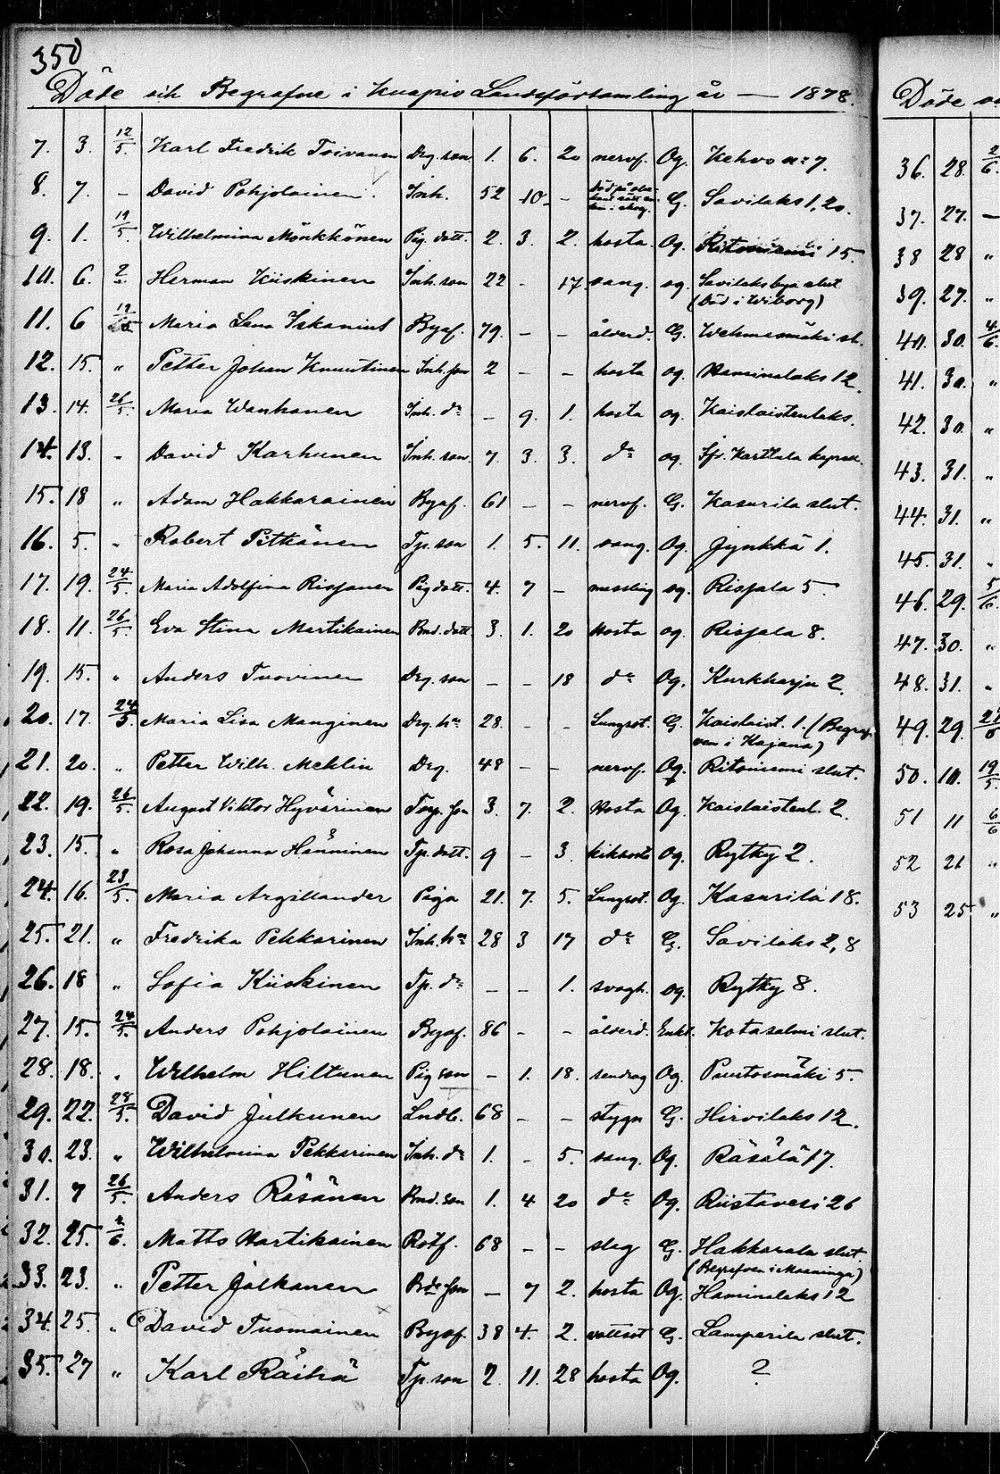 350
Döde och Begrafne i Kuopio Landsförsamling år — 1878.
7. 3. 12/5. Karl Fredrik Toivanen Drg. son 1. 6. 20 nervf. Og. Kehvo nr 7.
8. 7. – David Pohjolainen Inh. 52 10 – Död på G. Savilaks 1, 20.
9. 1. 19/5. Wilhelmina Mönkkönen Pig. dott. 2. 3. 2. hosta Og. Ritoniemi 15.
10. 6. 2 Herman Kiiskinen Inh. son 22 – 17 sang. og. Savilaksbys slut
(Död i Wiborg)
11. 6 19 Maria Lena Iskanius Bysf. 79. – – ålderd. G. Wehmasmäki sl.
12. 15. " Petter Johan Knuutinen Inh. son 2 – – hosta og. Haminalaks 12.
13. 14. 26/5. Maria Wanhanen Inh. dr – 9. 1. hosta og. Kaislaistenlaks.
14. 13. " David Karhunen Inh. son. 7. 3. 3. do og. Karttula
15. 18 " Adam Hakkarainen Bysf. 61 – – nervf. G. Kasurila slut.
16. 5. " Robert Pitkänen Tp. son 1. 5. 11. sang. Og. Jynkkä 1.
17. 19. 24/5. Maria Adolfina Rissanen Pigdott. 4. 7 – messling og. Rissala 5
18. 11. 26/5. Eva Stina Martikainen Bnd. dott. 3. 1. 20 Hosta og. Rissala 8.
19. 15. " Anders Tuovinen Drg. son – – 18 do Og. Kurkharju 2.
20. 17. 24/5. Maria Lisa Manginen Drg. hu 28. – – Lungsot. G. Kaislaist. 1. (Begraf-
ven i Kajana)
21. 20. " Petter Wilh. Mehlin Drg. 48 – – nervf. Og. Ritoniemi slut.
22. 19. 26/5. August Viktor Hyvärinen Torp. son 3. 7. 2. Hosta Og. Kaislaistenl. 2.
23. 15. " Rosa Johanna Hänninen Tp. dott. 9 – 3 kikhosta og. Rytky 2.
24. 16. 23/5. Maria Argillander Piga 21. 7. 5. Lungsot. Og. Kasurila 18.
25. 21. " Fredrika Pekkarinen Inh. hu 28 3 17 do G. Savilaks 2, 8
26. 18 " Sofia Kiiskinen Tp. dr – – 1. svagh. og. Rytky 8.
27. 15. 24/5. Anders Pohjolainen Bysf. 86 – – ålderd. Enkl. Kotasalmi slut.
28. 18. " Wilhelm Hiltunen Pig son – 1. 18. sendrag Og. Puutosmäki 5.
29. 22. 28/5. David Julkunen Lndb. 68 – – stygn G. Hirvilaks 12.
30. 23. " Wilhelmina Pekkarinen Inh. dr 1. – 5. sang. Og. Räsälä 17.
31. 7 26/5. Anders Räsänen Bnd. son 1. 4 20 do Og. Riistavesi 26
32. 25. 2/6. Matts Martikainen Rotf. 68 – – slag G. Hakkarala slut.
(Begrafven i Maaninga)
33. 23. " Petter Jalkanen Bde son – 7 2. hosta Og. Haminalaks 12
34. 25. " David Tuomainen Bysf. 38 4. 2. vattsot G. Lamperila slut.
35. 27 " Karl Räihä Tp. son 2. 11. 28 hosta Og. ?
Döde
36. 28. 2/6.
37. 27. –
38 28 "
39. 27. "
40. 30. 4/6.
41. 30. "
42. 30. "
43. 31. "
44. 31. "
45. 31. "
46. 29. 5/6.
47. 30. "
48. 31. "
49. 29.
50. 10. 19/5.
51 11 6/6
52 21 "
53 25 "